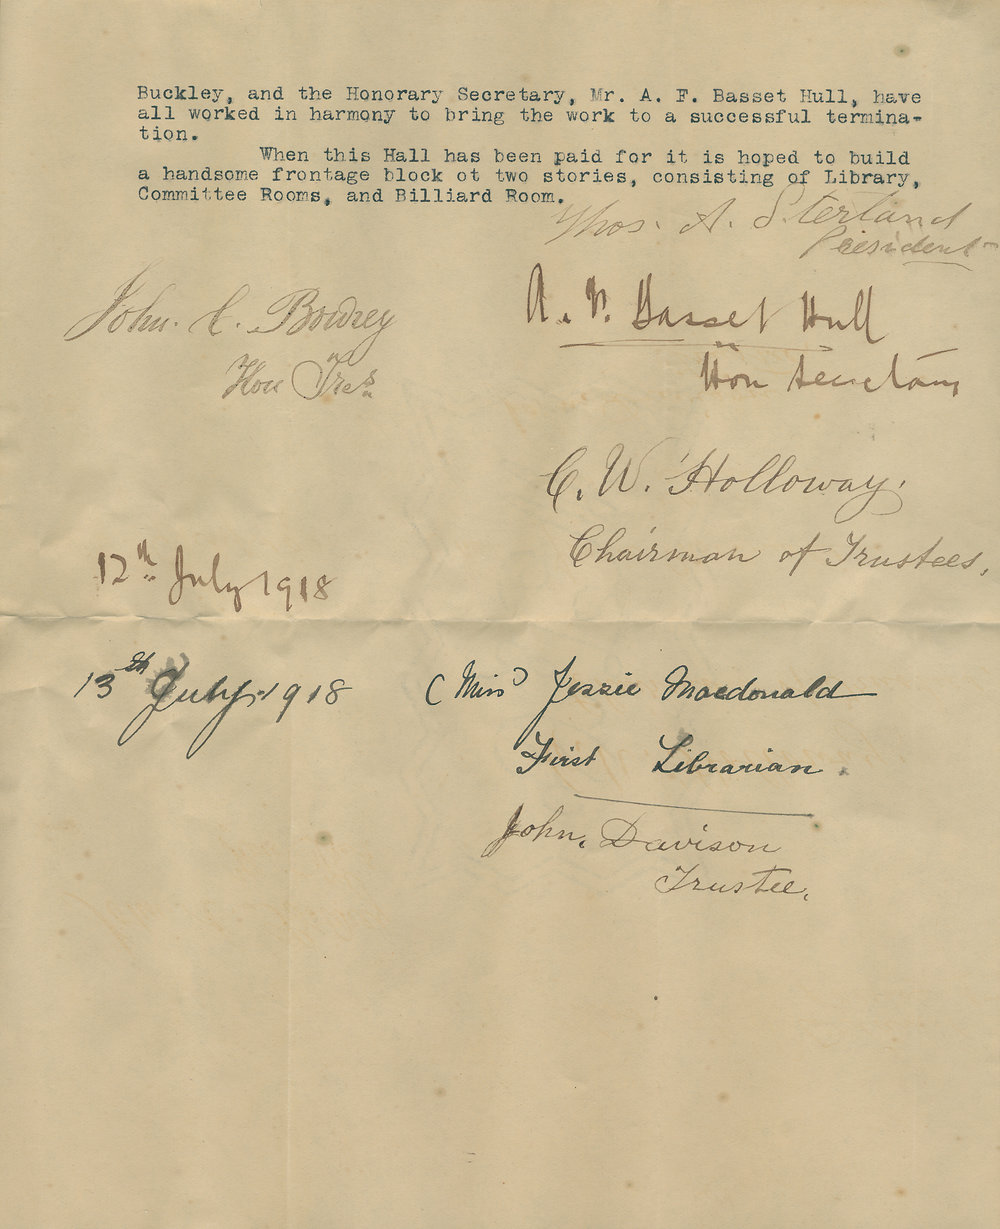 Buckley, and the Honorary Secretary, Mr. A. F. Basset Hull, have
all worked in harmony to bring the work to a successful termina-
tion.
When this Hall has been paid for it is hoped to build
a handsome frontage block ot two stories, consisting of Library,
Committee Rooms, and Billiard Room.
Thos. A. Sterland
President
John. C. Bowrey
Hon Tres
A. F. Basset Hull
Hon Secretary
C. W. Holloway.
Chairman of Trustees.
12th July 1918
13th July 1918
(Miss) Jessie Macdonald
First Librarian.
John. Davison
Trustee.